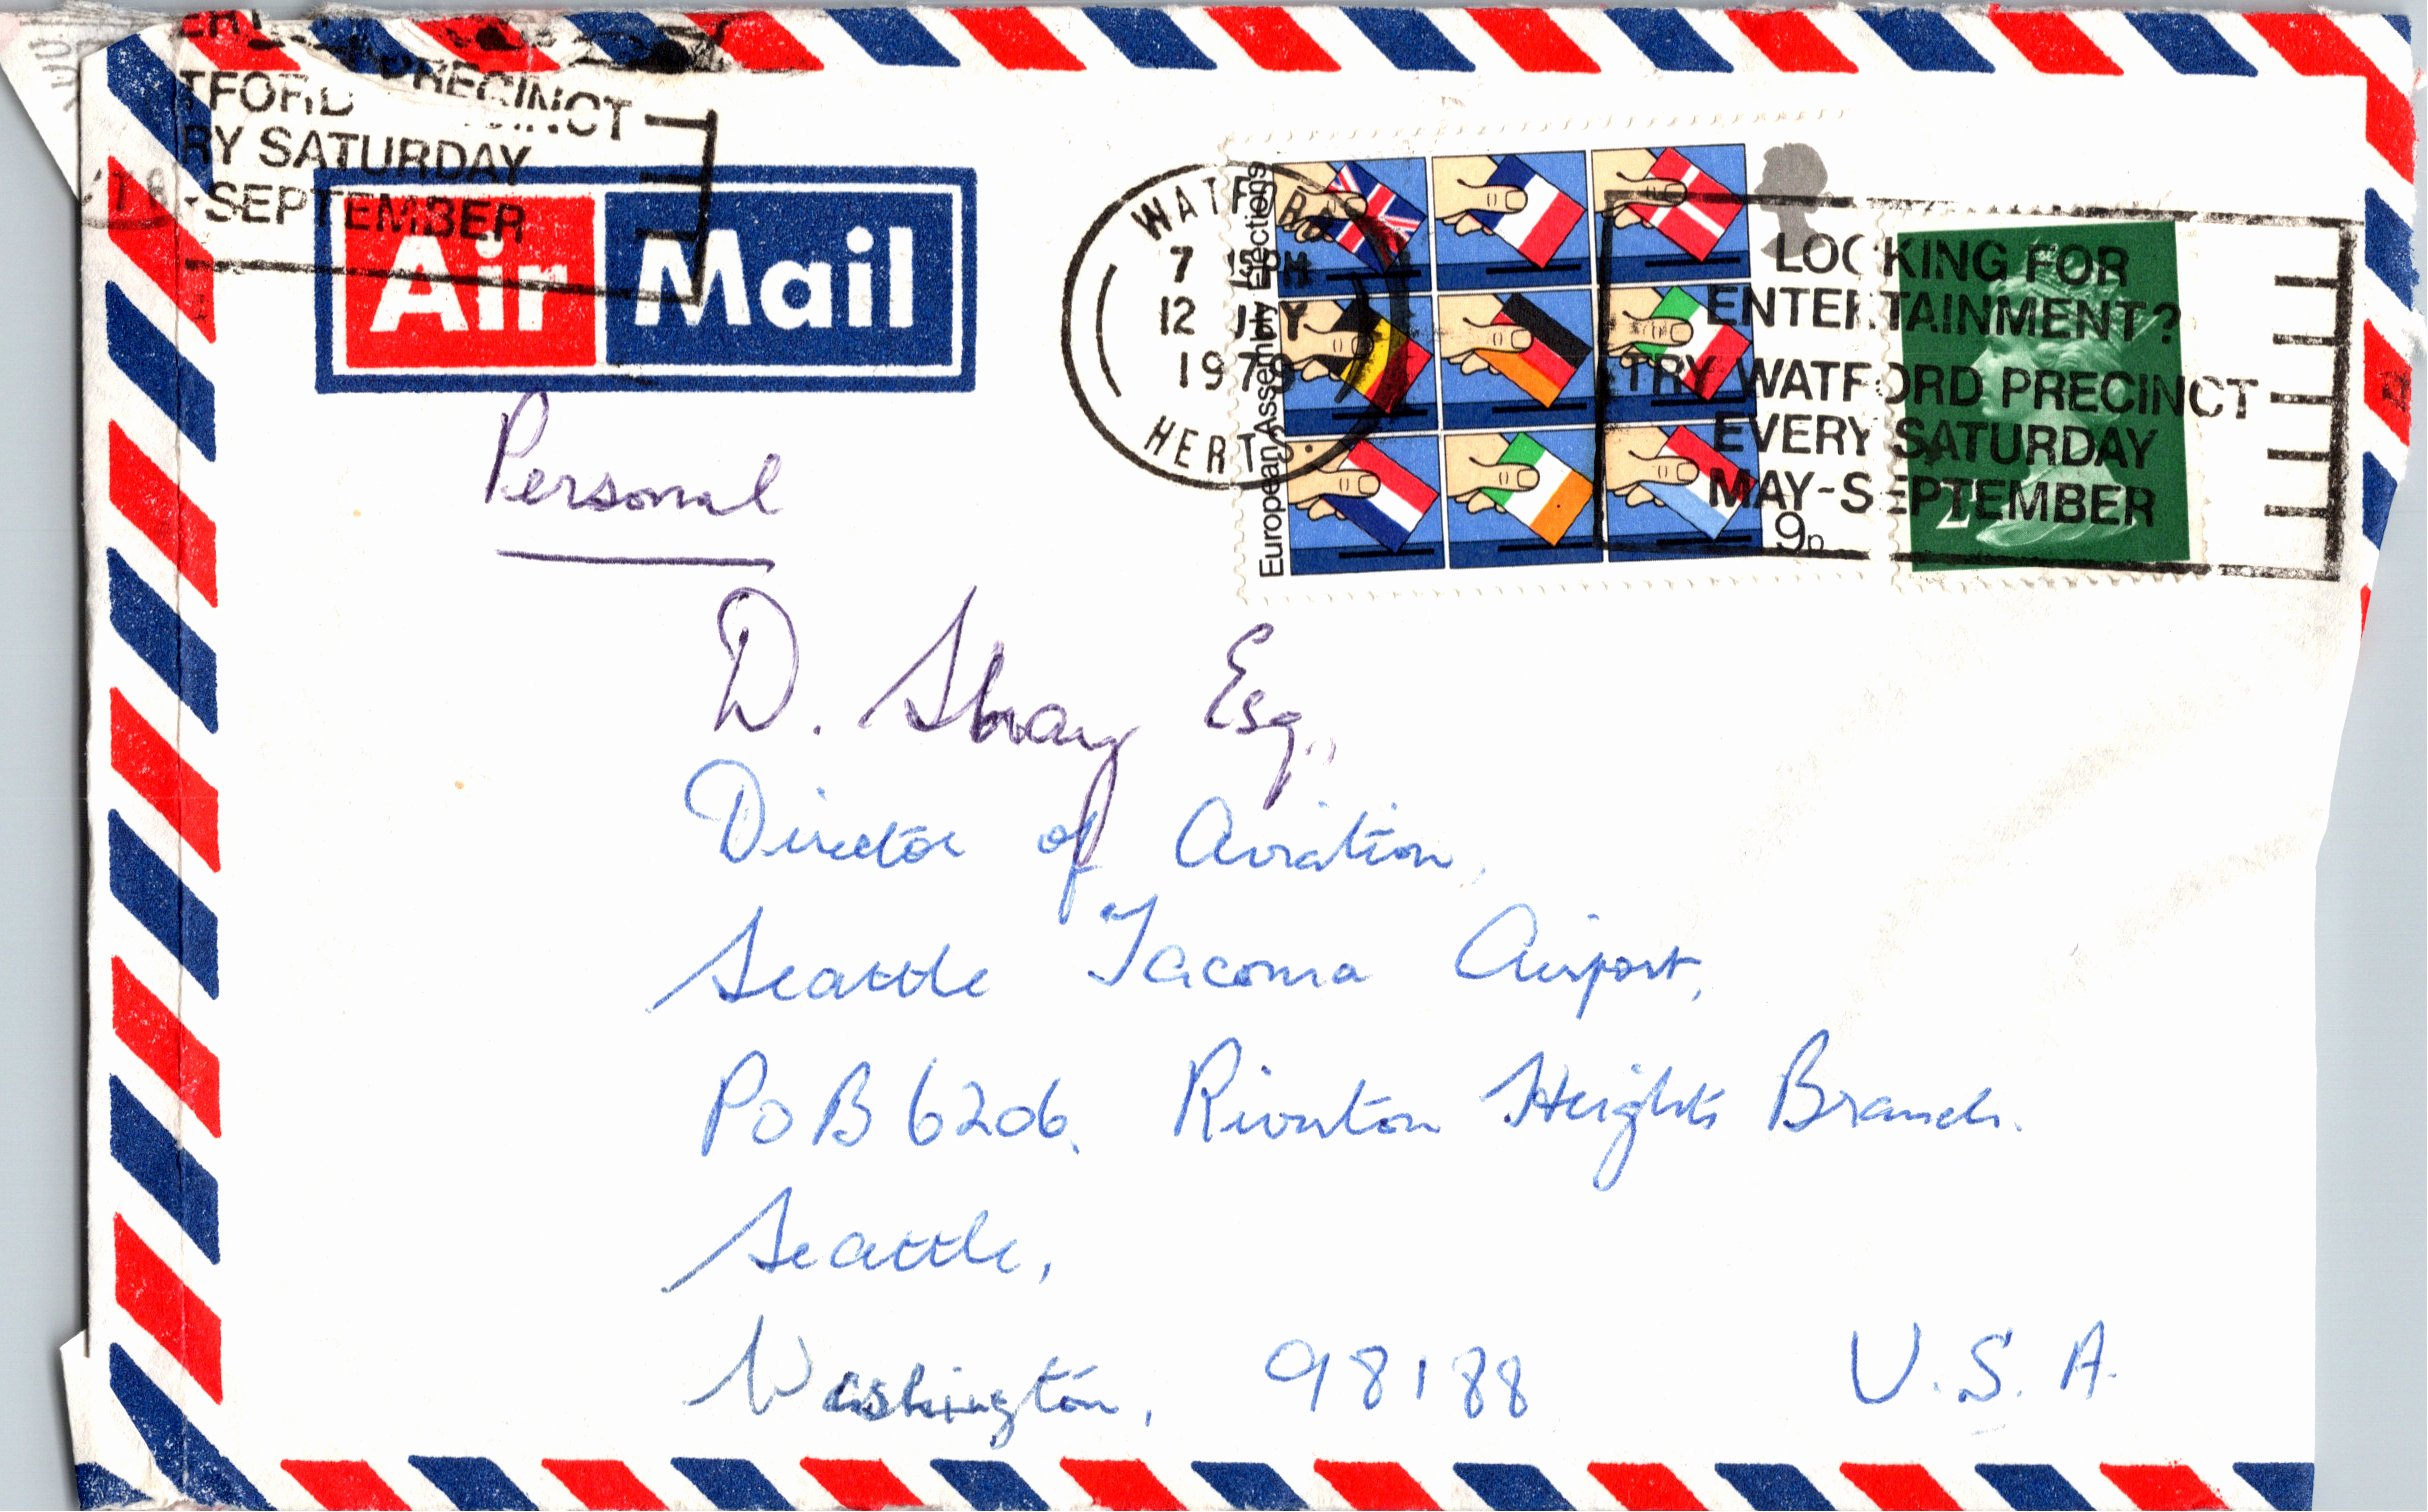 TFORD PRECINCT
RY SATURDAY
-SEPTEMBER
Air Mail
WATFORD
7 15 PM
12 JLY
1979
HERTS.
European Assembly Elections
9p
LOOKING FOR
ENTERTAINMENT?
TRY WATFORD PRECINCT
EVERY SATURDAY
MAY-SEPTEMBER
Personal
D. Shay Esq.,
Director of Aviation,
Seattle Tacoma Airport,
POB 6206. Riverton Heights Branch.
Seattle,
Washington, 98188 U.S.A.